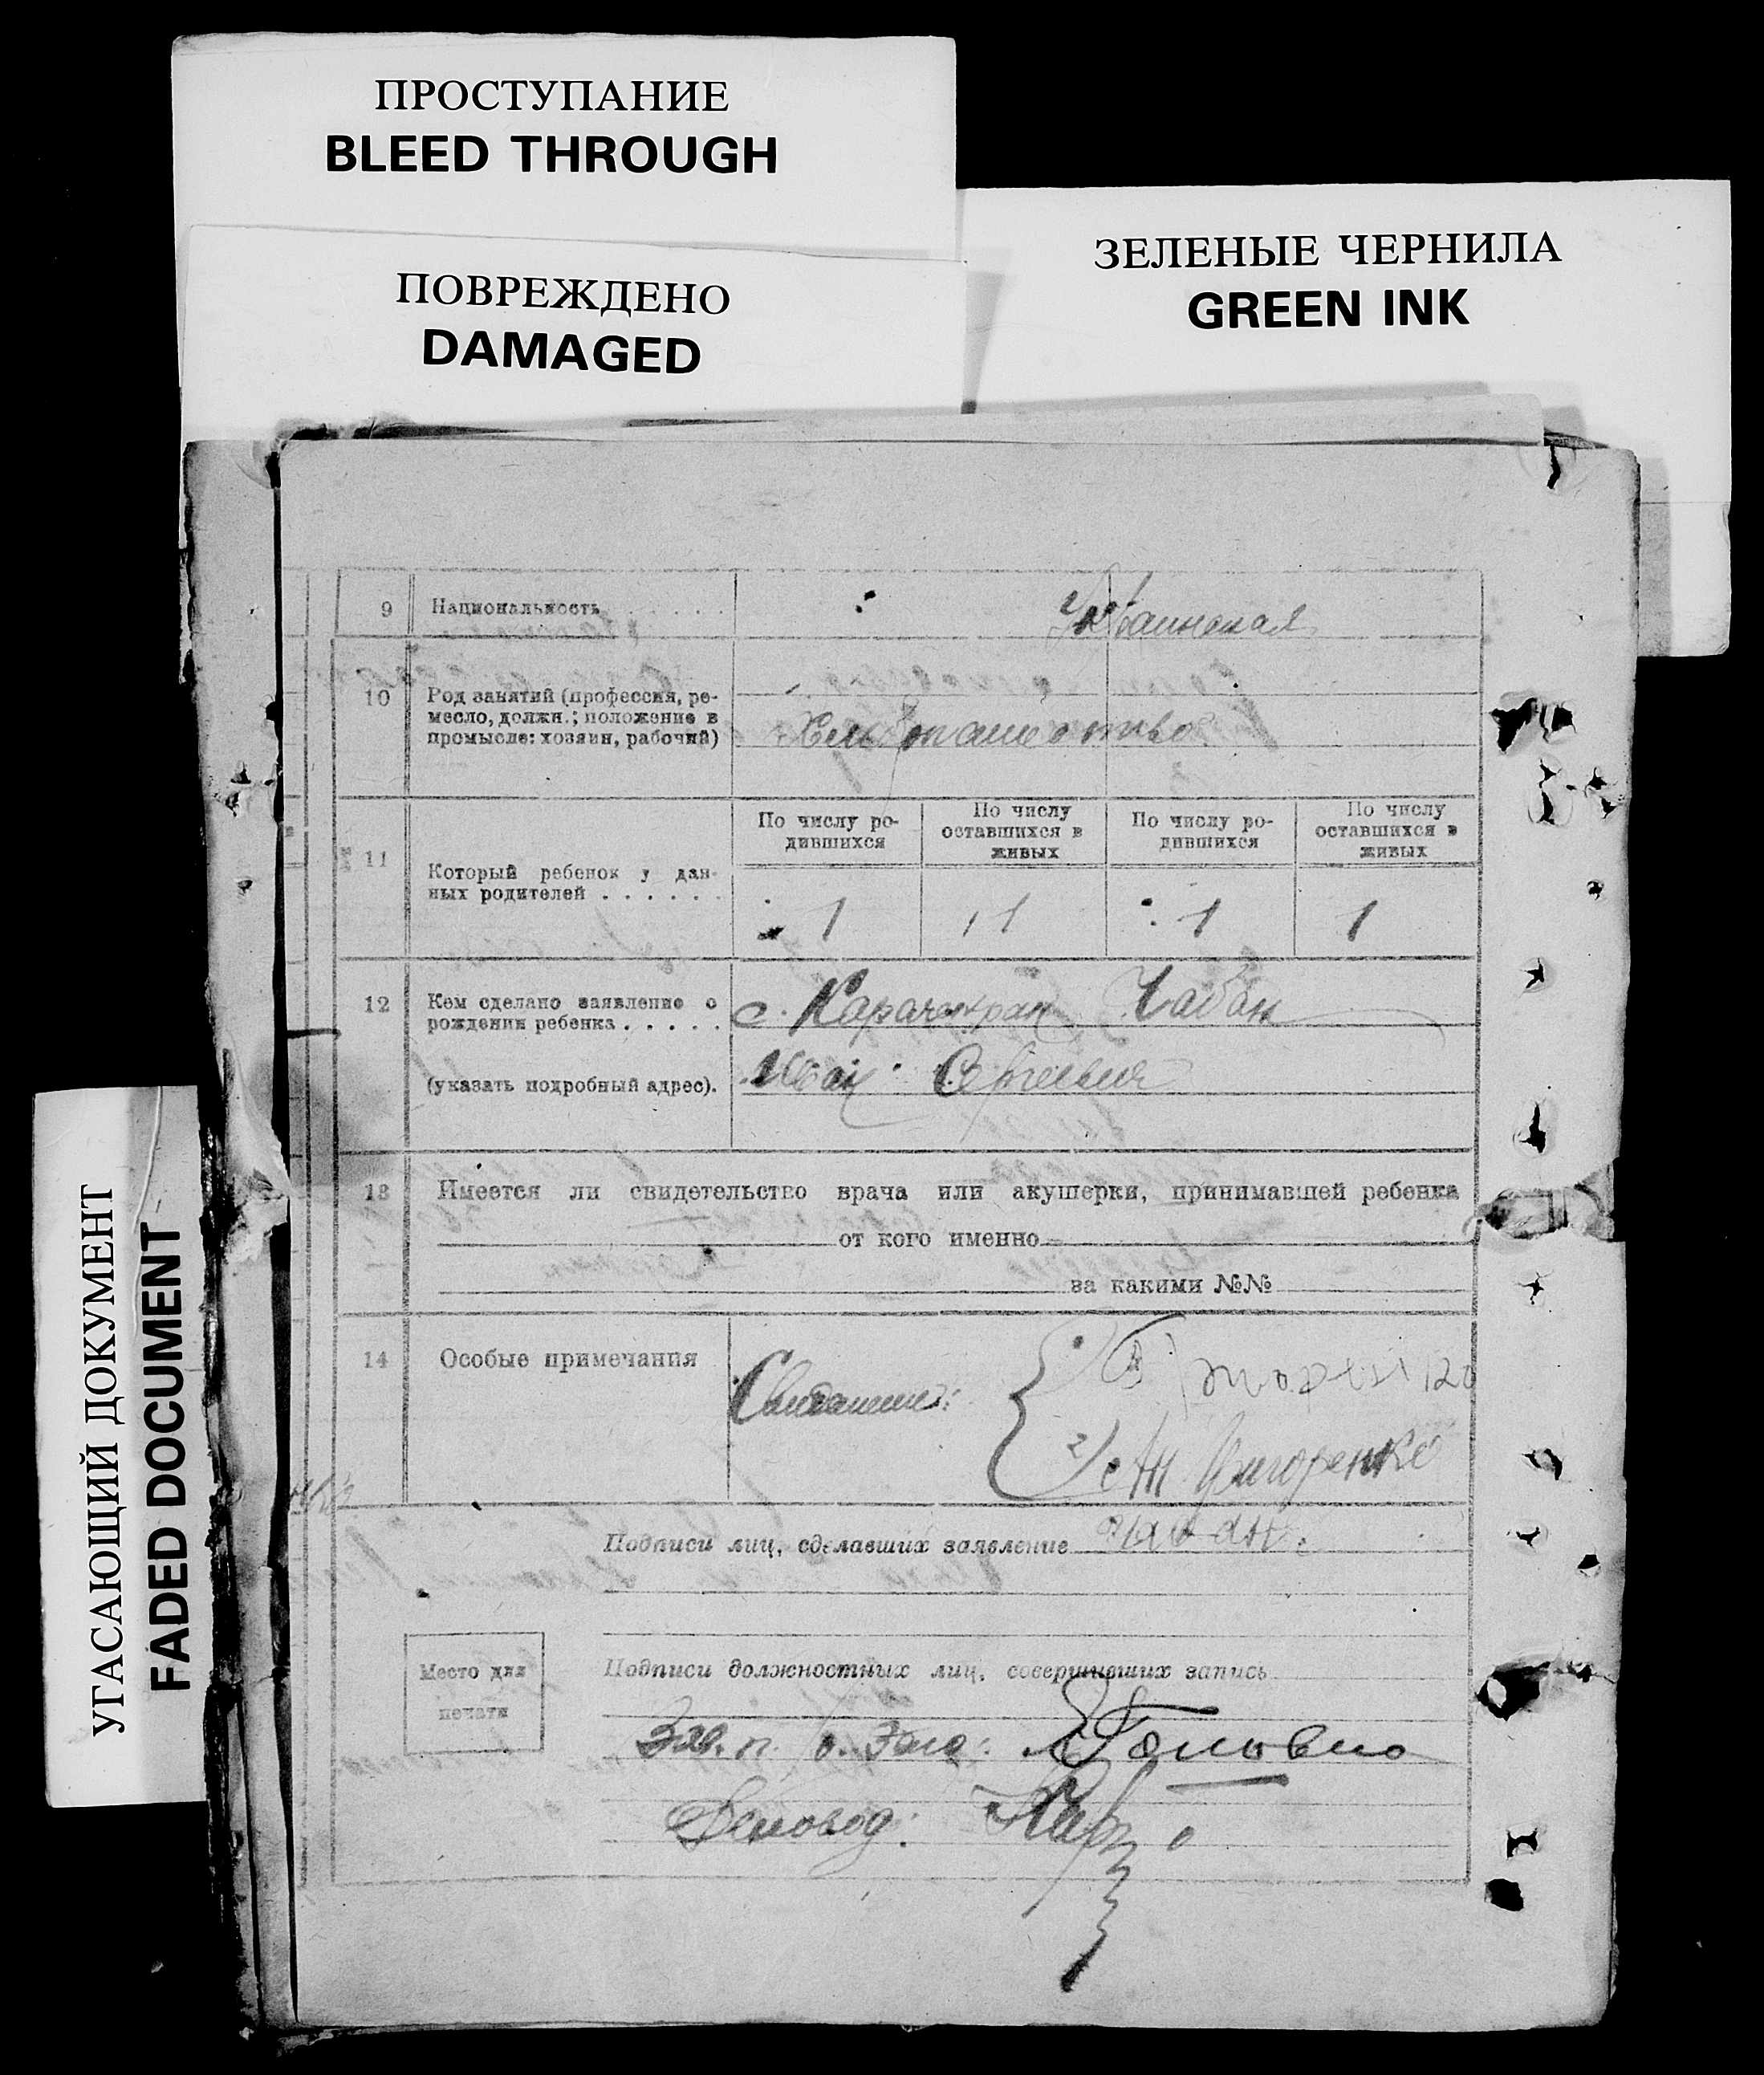 ПРОСТУПАНИЕ
BLEED THROUGH
ПОВРЕЖДЕНО
DAMAGED
ЗЕЛЕНЫЕ ЧЕРНИЛА
GREEN INK
УГАСАЮЩИЙ ДОКУМЕНТ
FADED DOCUMENT
9 Национальность . . . . . Украинская
10 Род занятий (профессия, ре-
месло, должн.; положение в
промысле: хозяин, рабочий)
Хлебопашество
11 Который ребенок у дан-
ных родителей . . . . . .
По числу ро-
дившихся
По числу
оставшихся в
живых
По числу ро-
дившихся
По числу
оставшихся в
живых
1 1 1 1
12 Кем сделано заявление о
рождении ребенка . . . . .
(указать подробный адрес).
с. Чабан
Иван Сергеевич
13 Имеется ли свидетельство врача или акушерки, принимавшей ребенка
от кого именно
за какими №№
14 Особые примечания
Свидетели:
2) Ан. Григоренко
Подписи лиц, сделавших заявление Чабан
Место для
печати
Подписи должностных лиц, совершивших запись
Зав. п. о. Загс: Головко
Деловод: